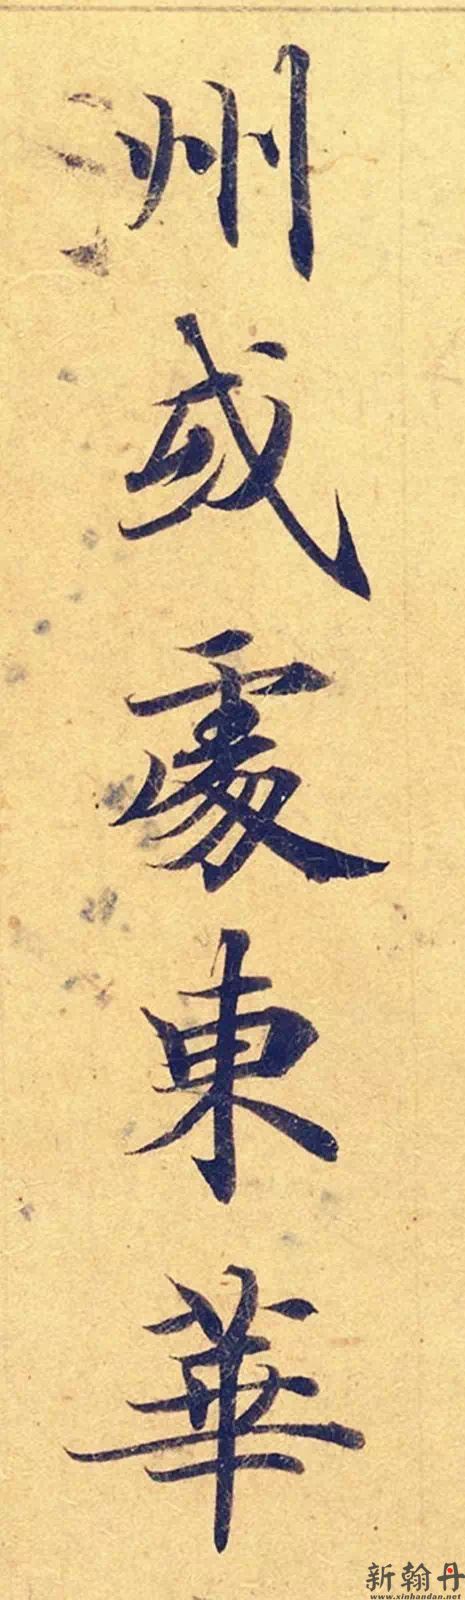 洲或處東華
新翰丹
www.xinhandan.net